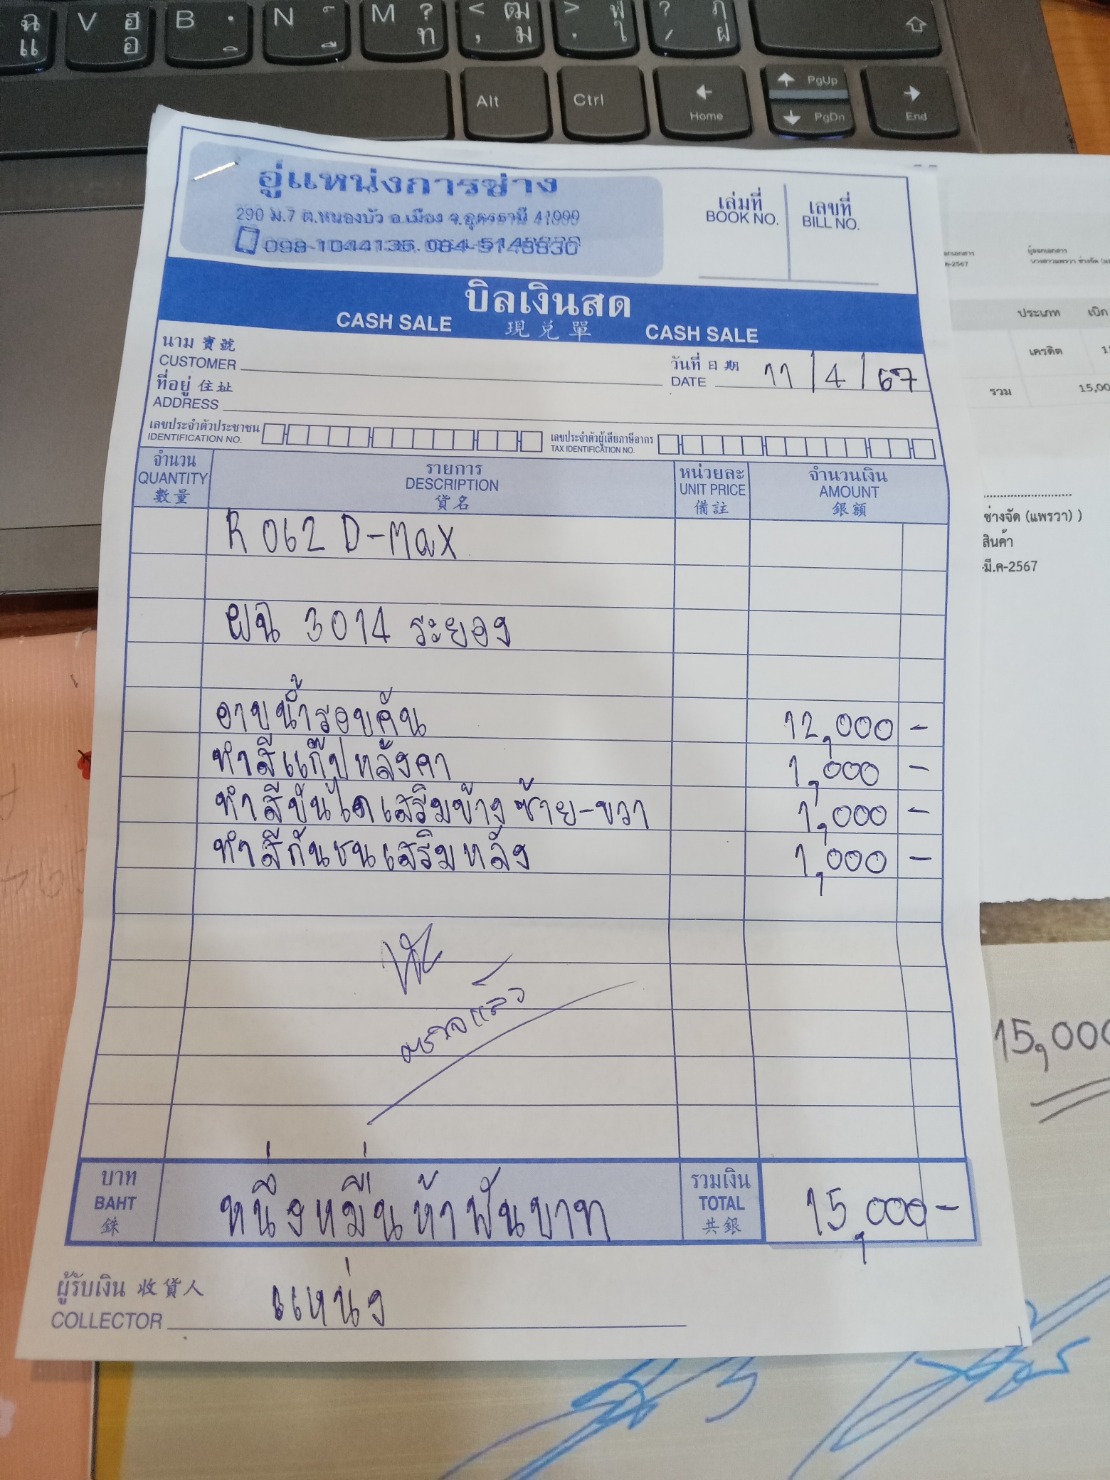 ฉ
แ
V ฮ
อ
B
ิ
N
ื
M ?
ท
< ฒ
, ม
> ฬ
. ใ
? ฦ
/ ฝ
Alt
Ctrl
Home
PgUp
PgDn
End
อู่แหน่งการช่าง
290 ม.7 ต.หนองบัว อ.เมือง จ.อุดรธานี 41000
098-1044136. 084-5148830
เล่มที่
BOOK NO.
เลขที่
BILL NO.
บิลเงินสด
CASH SALE 現兌單 CASH SALE
นาม 寳號
CUSTOMER
วันที่ 日期
DATE 11/4/67
ที่อยู่ 住址
ADDRESS
เลขประจำตัวประชาชน
IDENTIFICATION NO.
เลขประจำตัวผู้เสียภาษีอากร
TAX IDENTIFICATION NO.
จำนวน
QUANTITY
數量
รายการ
DESCRIPTION
貨名
หน่วยละ
UNIT PRICE
備註
จำนวนเงิน
AMOUNT
銀額
R 062 D-Max
ผฉ 3014 ระยอง
อาบน้ำรอบคัน 12,000 -
ทำสีแก๊ปหลังคา 1,000 -
ทำสีบันไดเสริมข้าง ซ้าย-ขวา 1,000 -
ทำสีกันชนเสริมหลัง 1,000 -
ตรวจแล้ว
บาท
BAHT
銖
หนึ่งหมื่นห้าพันบาท
รวมเงิน
TOTAL
共銀
15,000-
ผู้รับเงิน 收貨人
COLLECTOR
แหน่ง
-2567
ประเภท เบิก
เครดิต
รวม 15,00
ช่างจัด (แพรวา) )
สินค้า
มี.ค-2567
15,000